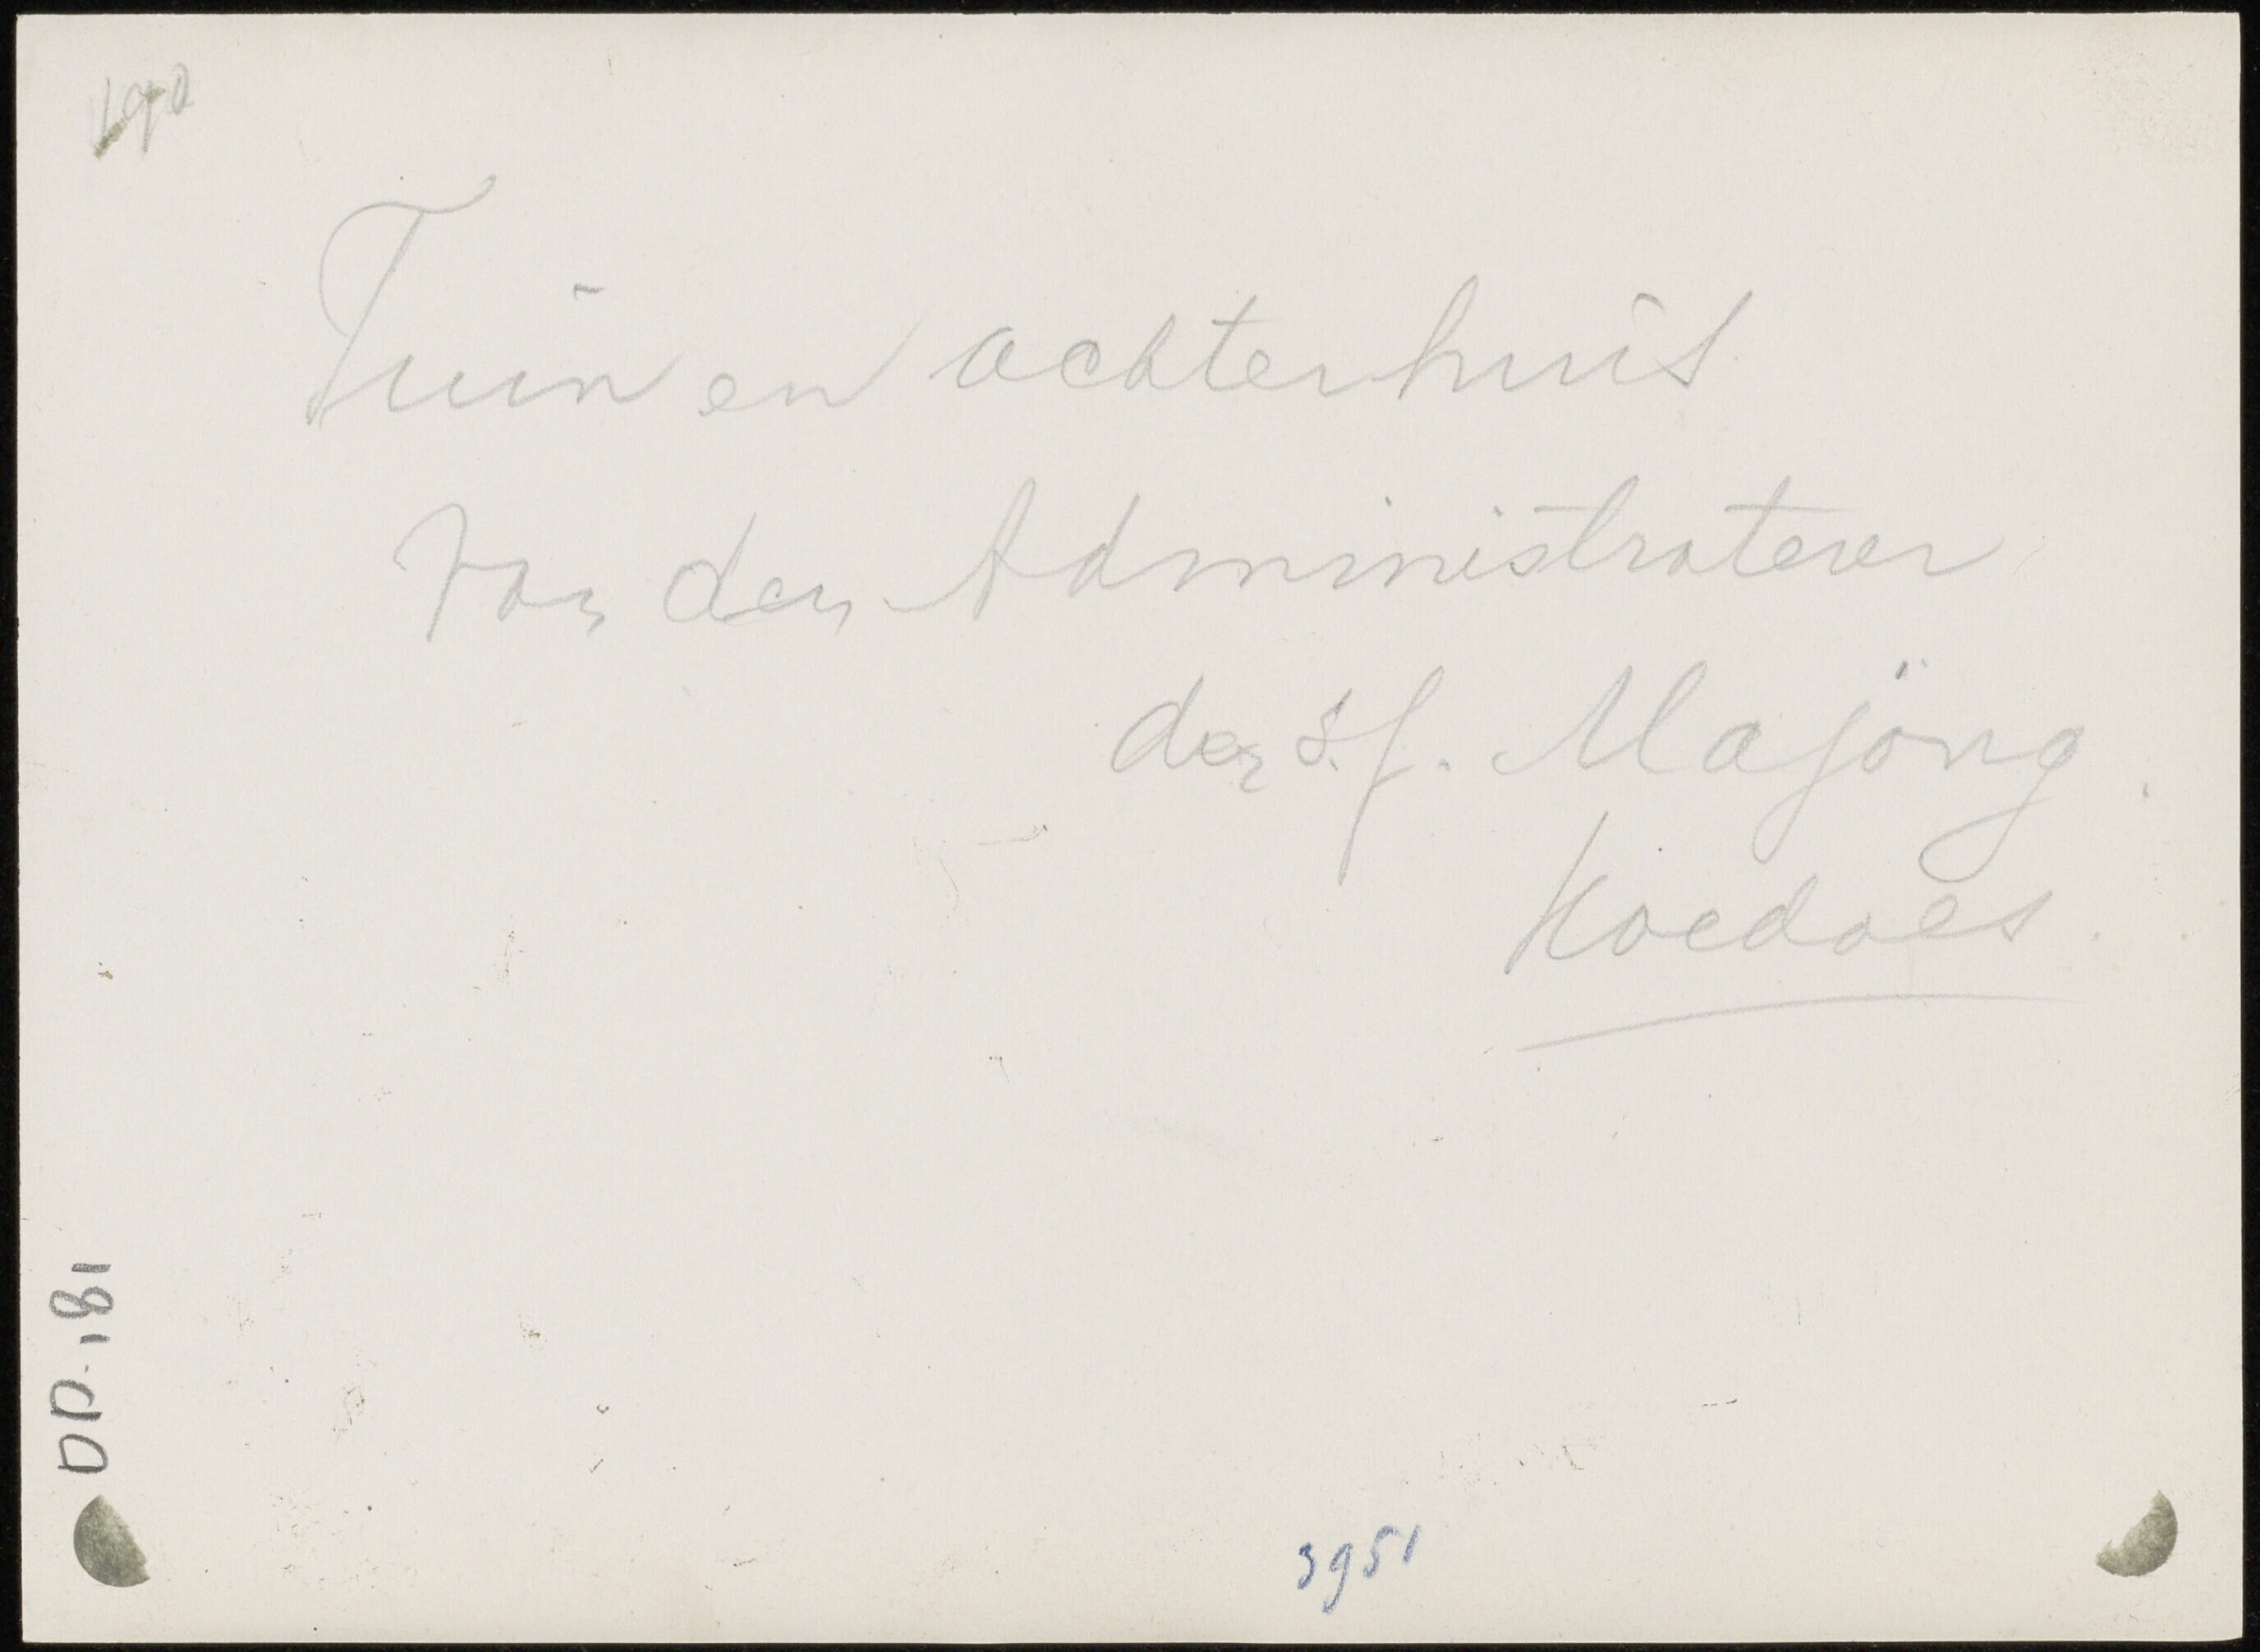 190
Tuin en achterhuis
van den Administrateur
der s.f. Majong.
Koedoes.
DD.181
3951